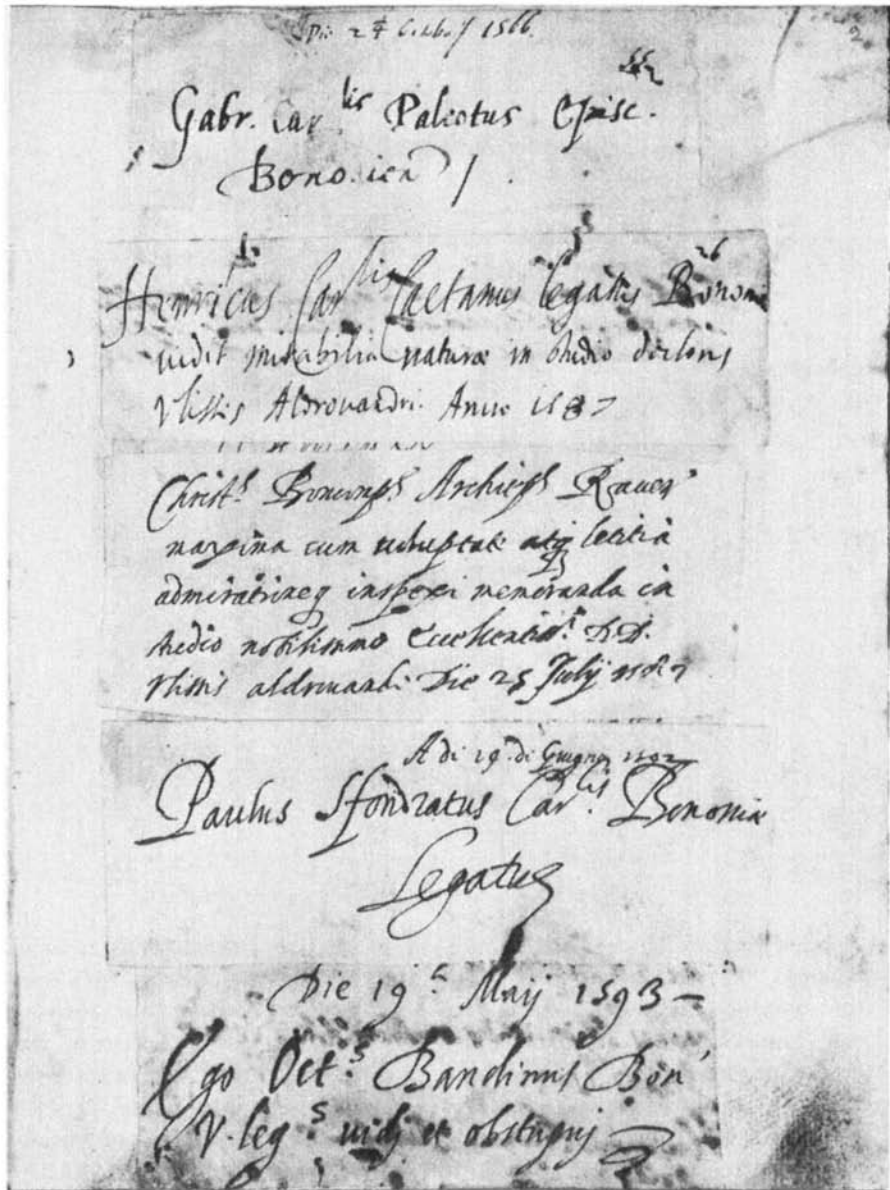 Die 24 1566.
2
Gabr. Car.lis Paleotus Episc.
Bononien
Henricus Car.lis Caetanus legatus Bononi
vidit mirabilia naturæ in studio doctoris
Vlissis Aldrouandi. Anno 1587
Christ.s Boncomp.s Archieps Rauen
maxima cum uoluptate atq letitia
admirationeq inspexi memoranda in
studio nobilissimo Excellentiss.i D.D.
Vlissis aldrouandi Die 25 Julij 1587
A di 19 di Giugno
Paulus Sfondratus Car.lis Bononiæ
Legatus
Die 19 Maij 1593
Ego Oct.s Bandinus Bon
V. leg.s uidj et obstupuj